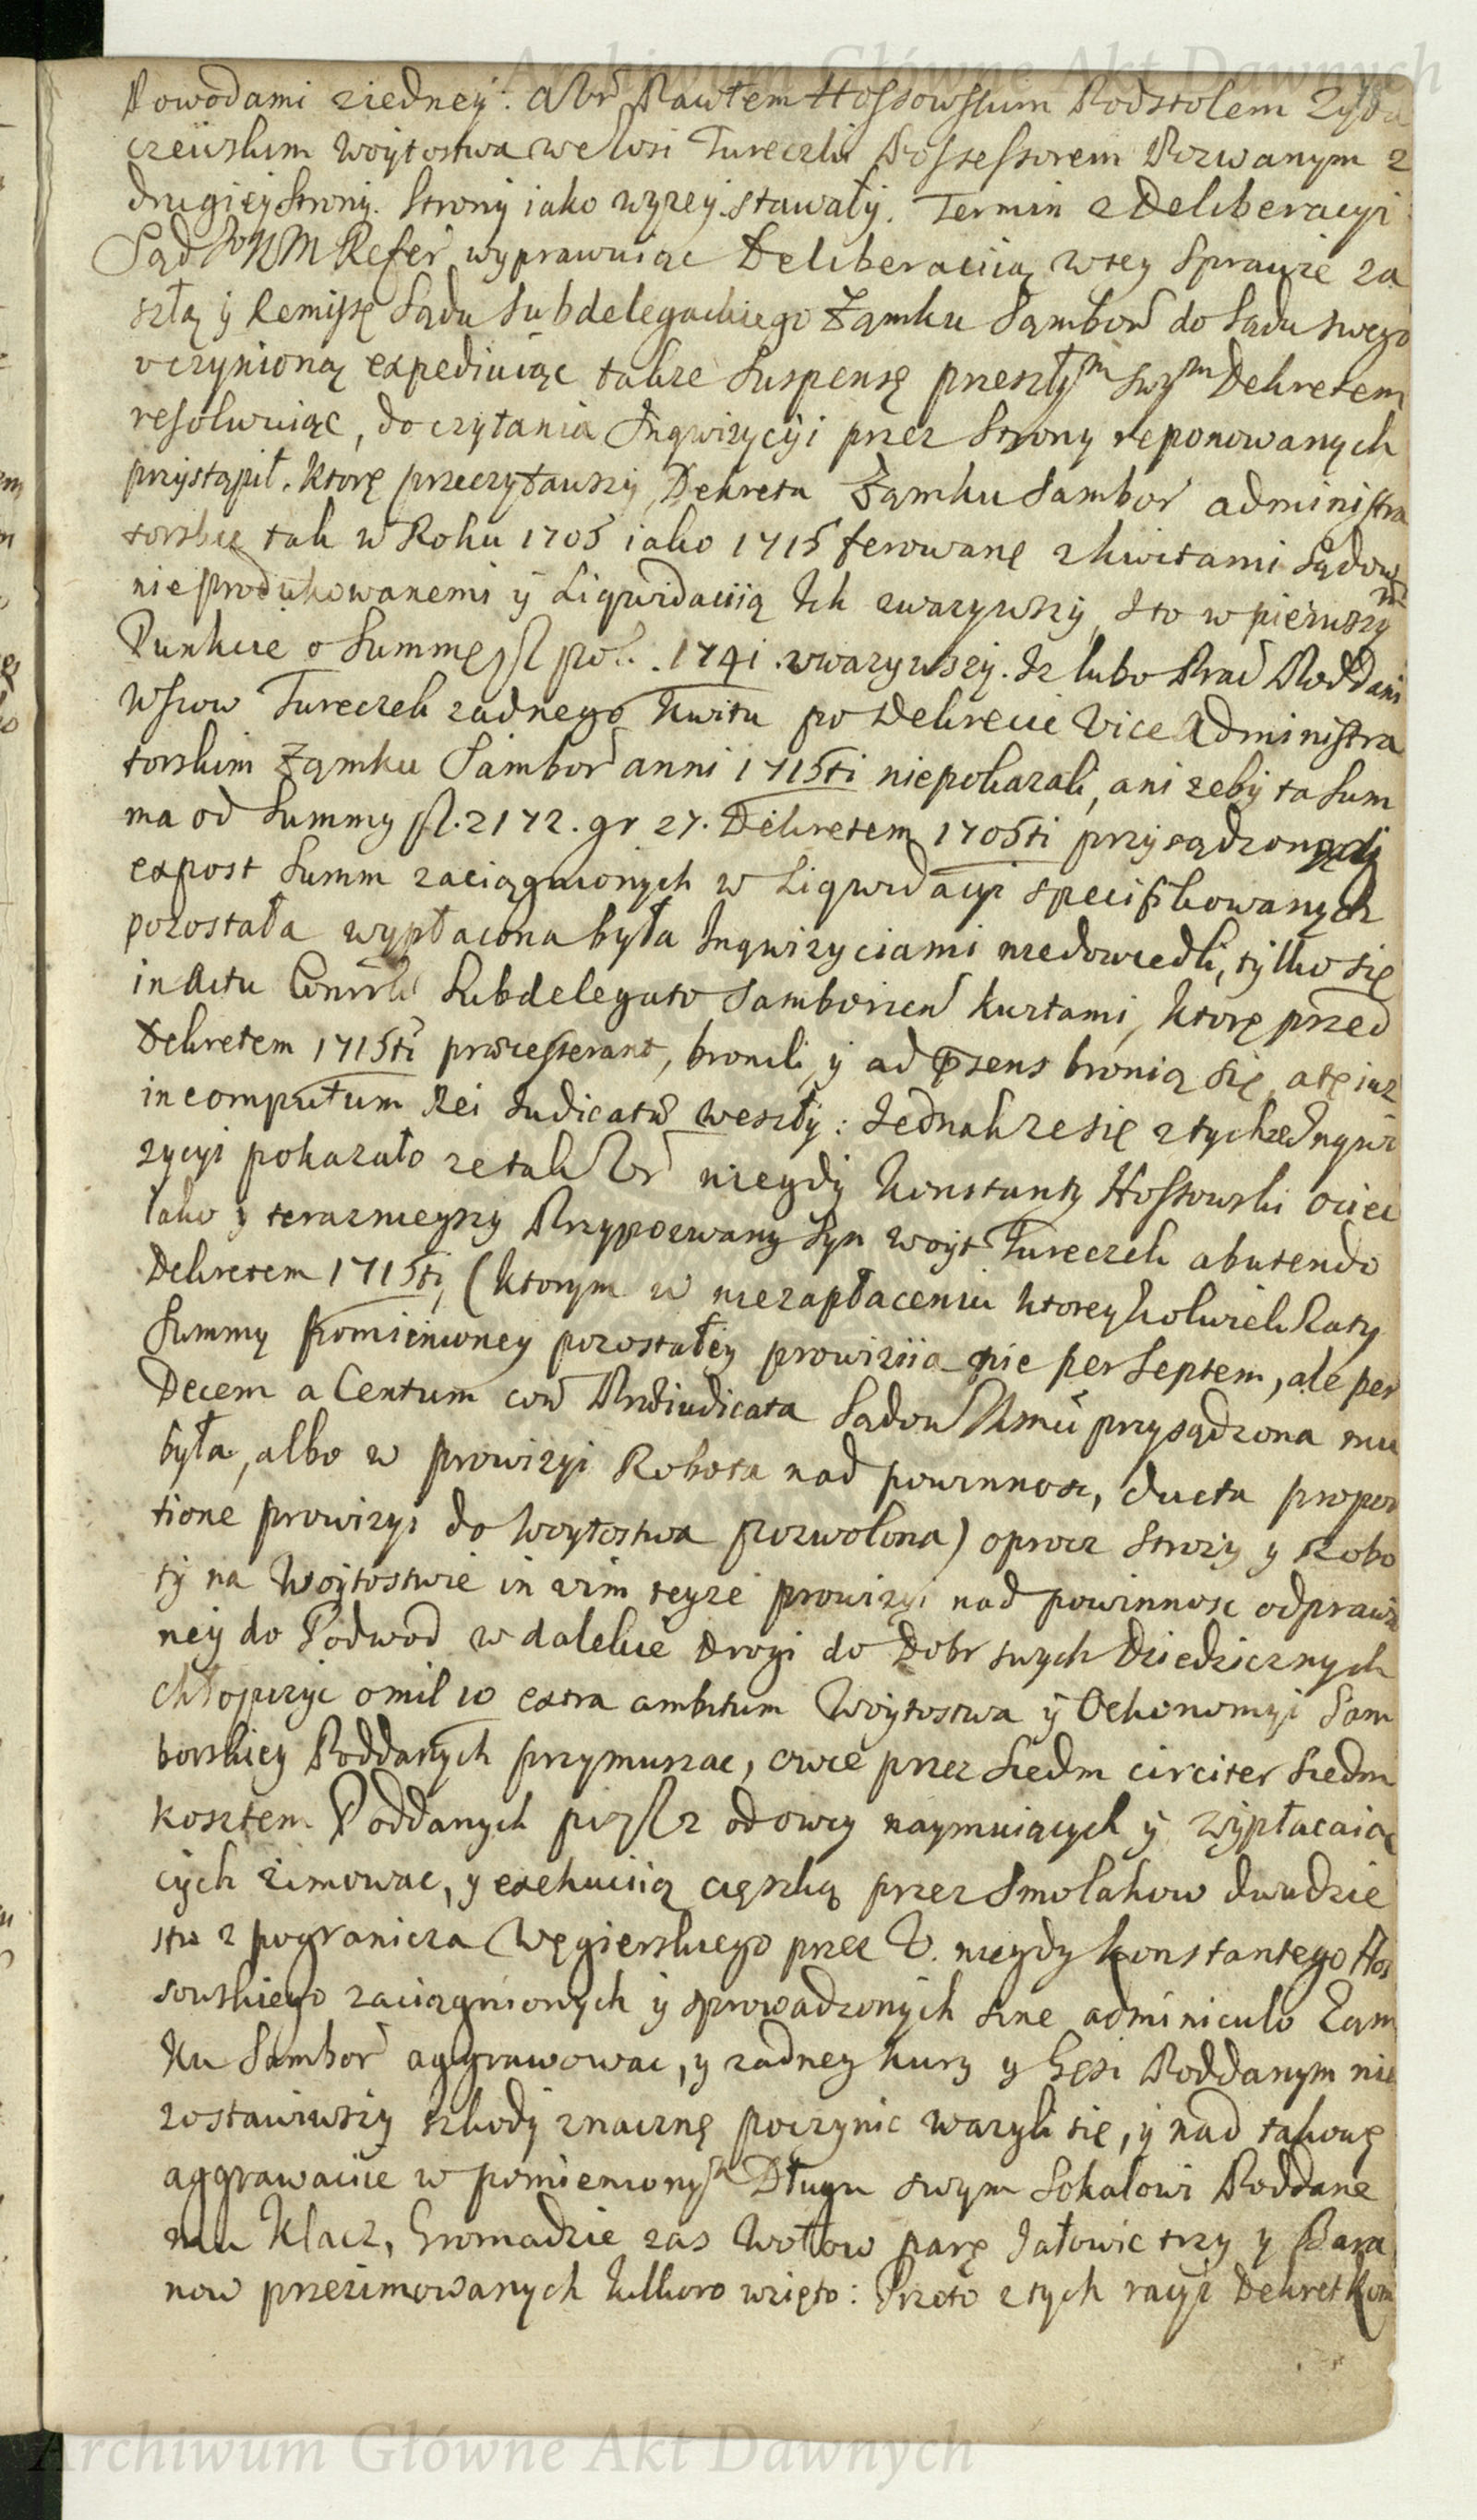 Archiwum Główne Akt Dawnych
Powodami ziedney. a Ur Pawłem Hossowskim Podstolem Zyda
czewskim Woytostwa we Wsi Tureczki Possessorem Pozwanym z
drugiey strony. Strony iako wyzey stawały. Termin z Deliberacyi
Sąd Refer wyprawuiąc Deliberacyią wtey Sprawie za
szłą y Remissę Sądu Subdelegackiego Zamku Sambor do Sądu swego
uczynioną expediuiąc takze Suspensę przeszłym swym Dekretem
resolwuiąc, do czytania Inqwizycyi przez Strony reponowanych
przystąpił. Ktorę przeczytawszy Dekreta Zamku Sambor administra
torskie tak w Roku 1705 iako 1715 ferowanę zkwitami Sądown
nieprodukowanemi y Liqwidacyią Ich zwazywszy, Ito w pierwszym
Punkcie o Summę fl pol. 1741. uwazywszy. Iz lubo Prac Poddani
Wsiow Tureczek zadnego Kwitu po Dekrecie Vice Administra
torskim Zamku Sambor anni 1715ti niepokazali, ani zeby ta Sum
ma od Summy fl. 2172. gr 27. Dekretem 1705ti przysądzoney y
expost Summ zaciągnionych w Liqwidacyi specifikowanych
pozostała wypłacona była Inqwizyciami niedowiedli, tylko się
in Actu Subdelegato Samborien kartami, ktorę przed
Dekretem 1715ti processerant, bronili y ad praesens bronią się, atę iuz
in computum Rei Iudicatae weszły: Iednak ze się ztychze Inqwi
zycyi pokazało ze tak Ur niegdy Konstanty Hossowski ociec
iako y terazniejszy Przypozwany Syn woyt Tureczek abutendo
Dekretem 1715ti, (ktorym w niezapłaceniu ktoreykolwiek Raty
Summy pomienioney pozostałey prowizyia nie per Septem, ale per
Decem a Centum Praeiudicata Sądow przysądzona mu
była, albo w prowizyi Robota nad powinnosc, ducta propor
tione prowizyi do Woytostwa pozwolona) oprocz Strozy y Robo
ty na Woytostwie in vim teyze prowizyi nad powinnosc odprawio
ney do Podwod w dalekie Drogi do Dobr swych Dziedzicznych
Chłopczyc o mil 10 extra ambitum Woytostwa y Oekonomyi Sam
borskiey Poddanych przymuszac, owce przez Siedm circiter Siedm
kosztem Poddanych po fl 2 od owcy naymuiących y wypłacaią
cych zimowac, y exekucyią cięszką przez Smolakow dwudzie
stu z pogranicza Węgierskiego przez U. niegdy Konstantego Hos
sowskiego zaciągnionych y sprowadzonych sine adminiculo Zam
ku Sambor aggrawowac, y zadney kury y Gęsi Poddanym nie
zostawiwszy szkody znacznę poczynic wazyli się, y nad takowę
aggrawacie w pomienionym Długu swym Sokalowi Poddane
mu Klacz, Gromadzie zas Wołow parę Iałowic trzy y Bara
now przezimowanych kilkoro wzięto: Przeto ztych racyi Dekret Kom
Archiwum Główne Akt Dawnych